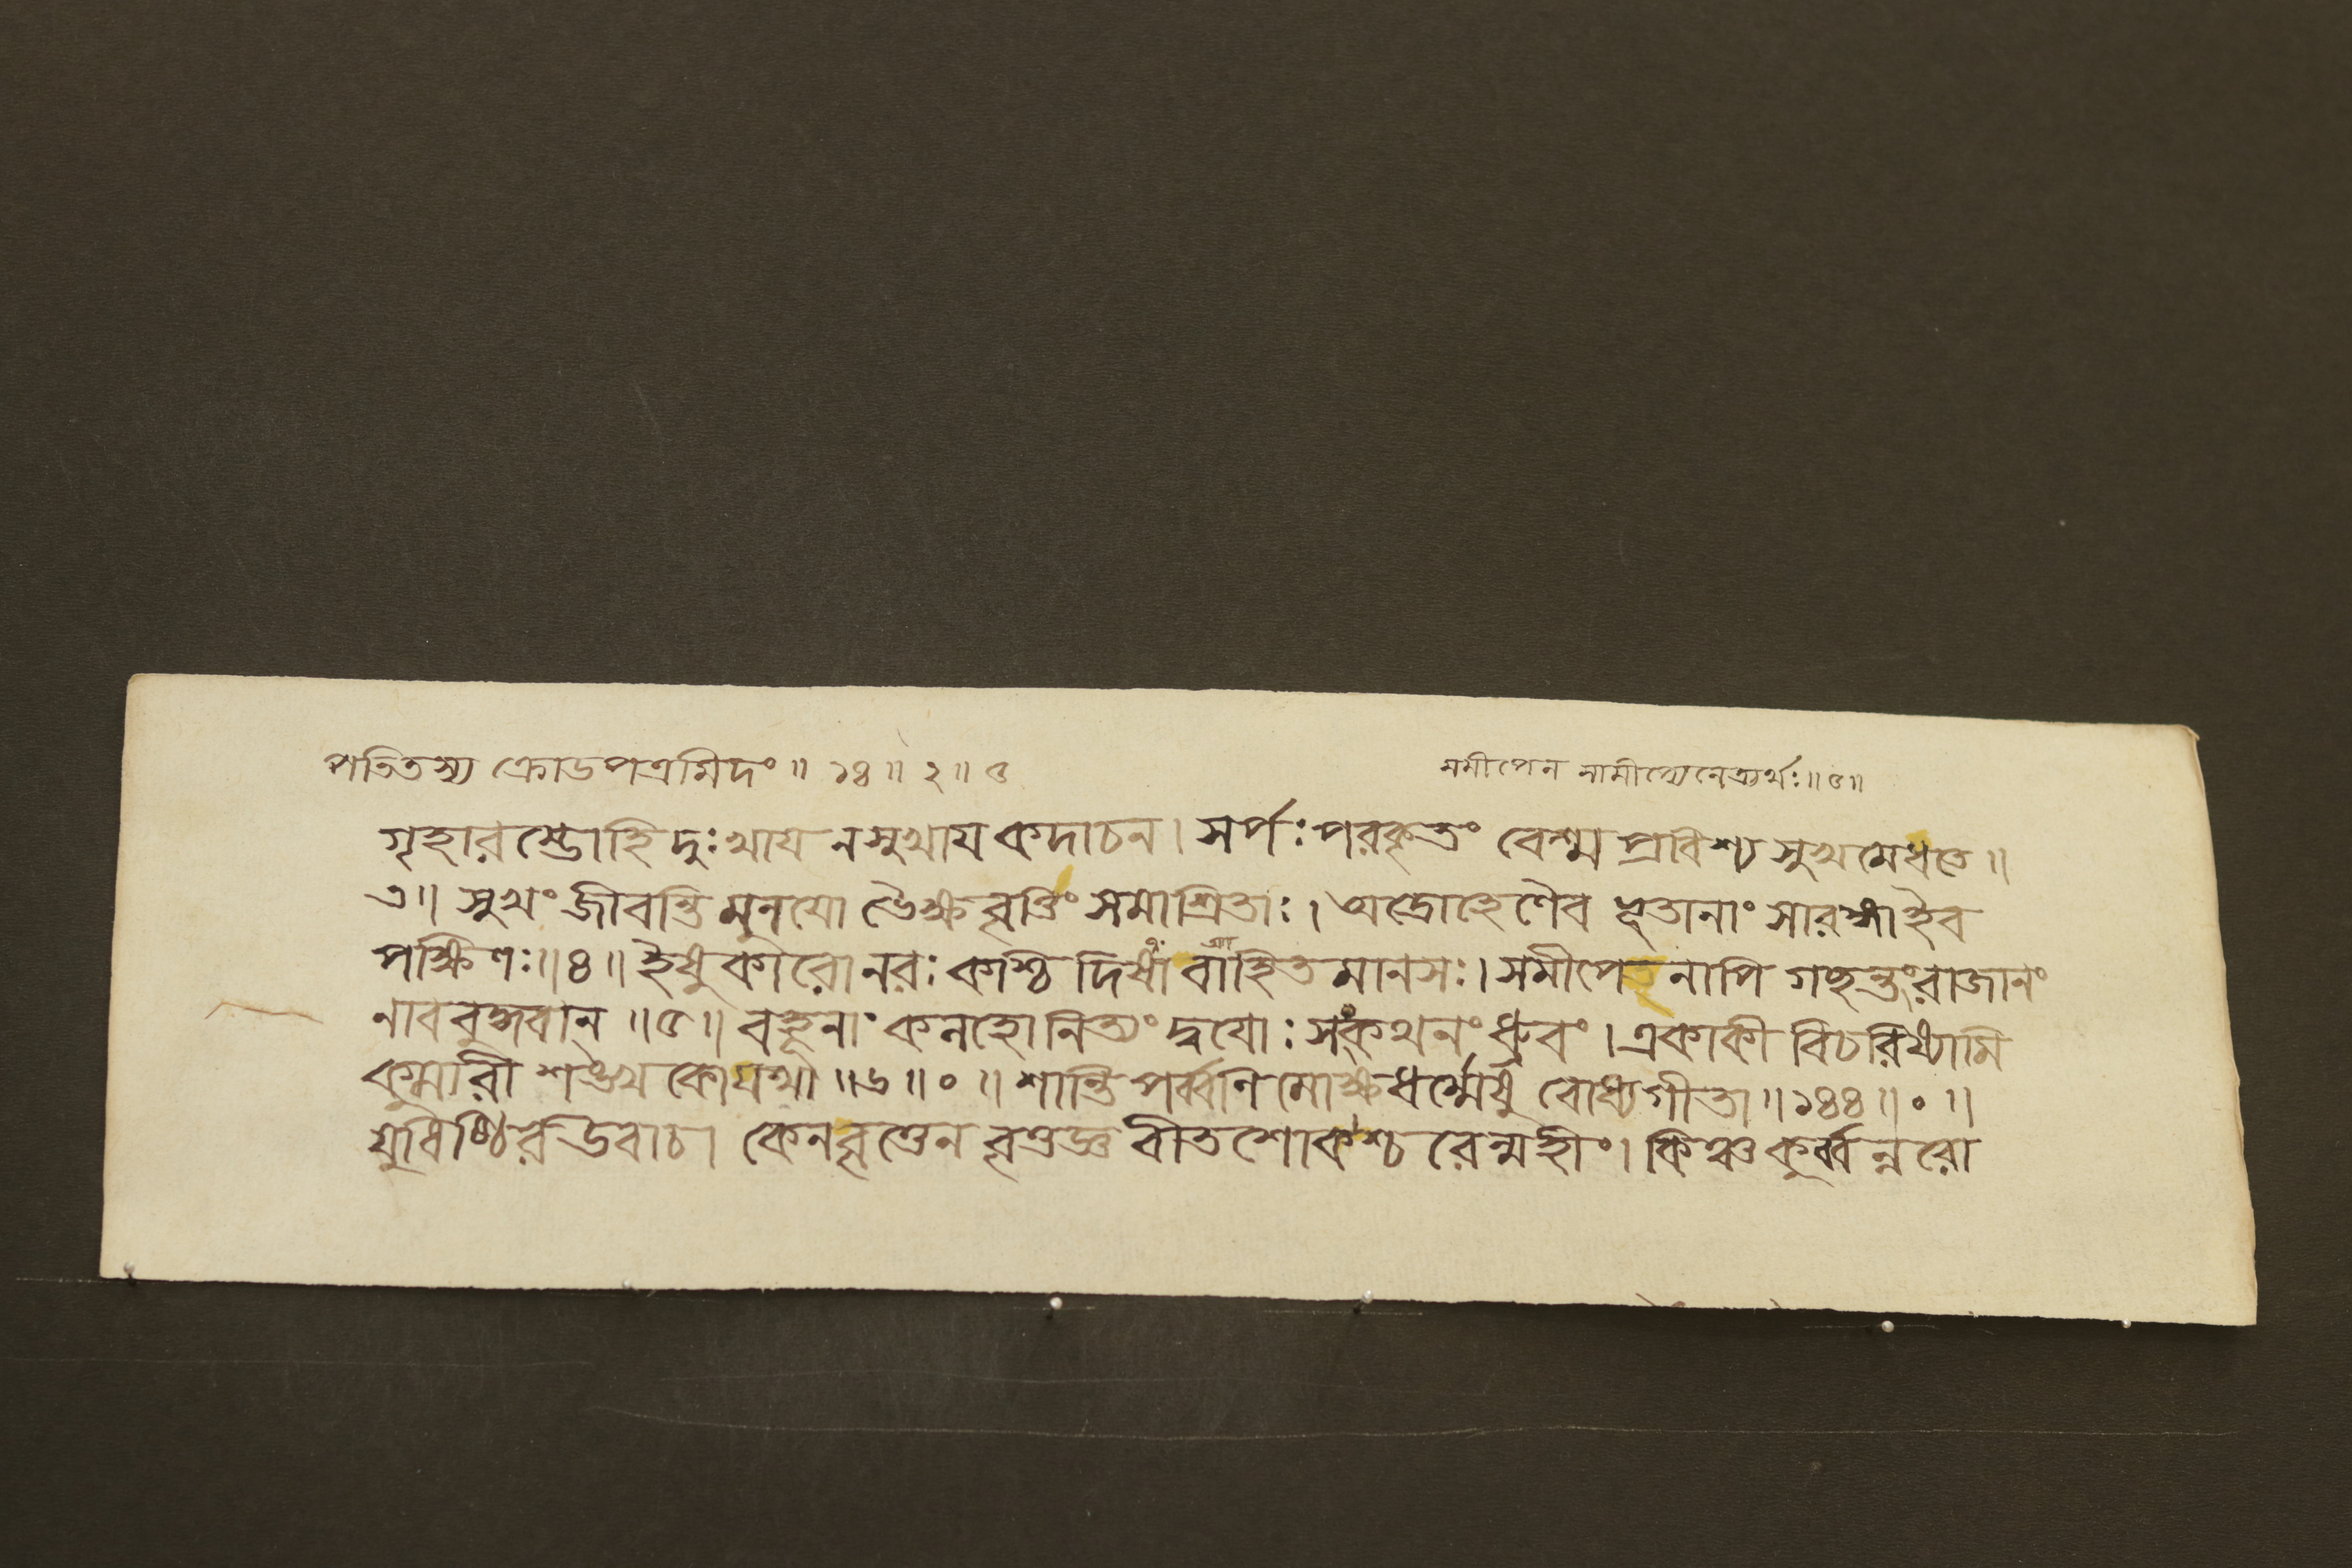 পতিতস্য ক্রোডপত্রমিদং ॥ ১৪॥ ২॥ ৫
সমীপেন সামীপ্যেনেত্যর্থঃ॥৫॥
গৃহারম্ভোহি দুঃখায নসুখায কদাচন। সর্পঃপরকৃতং বেশ্ম প্রবিশ্য সুখমেধতে॥
৩॥ সুখং জীবন্তি মুনযো ভৈক্ষবৃত্তিং সমাশ্রিতাঃ। অদ্রোহেণৈব ভূতানাং সারঙ্গাইব
পক্ষিণঃ॥৪॥ ইষুকারোনরঃ কশ্চিদিষাবাহিতমানসঃ। সমীপেনাপি গচ্ছন্তং রাজানং
নাববুদ্ধবান্ ॥৫॥ বহূনাং কলহোনিত্যং দ্বযোঃ সংকথনং ধ্রুবং। একাকী বিচরিষ্যামি
কুমারী শঙ্খকোযথা ॥৬॥০॥ শান্তি পর্ব্বণি মোক্ষধর্ম্মেষু বোধ্যগীতা॥১৪৪॥০॥
যুধিষ্ঠির উবাচ। কেনবৃত্তেন বৃত্তজ্ঞ বীতশোকশ্চরেন্মহীং। কিঞ্চ কুর্ব্বন্নরো